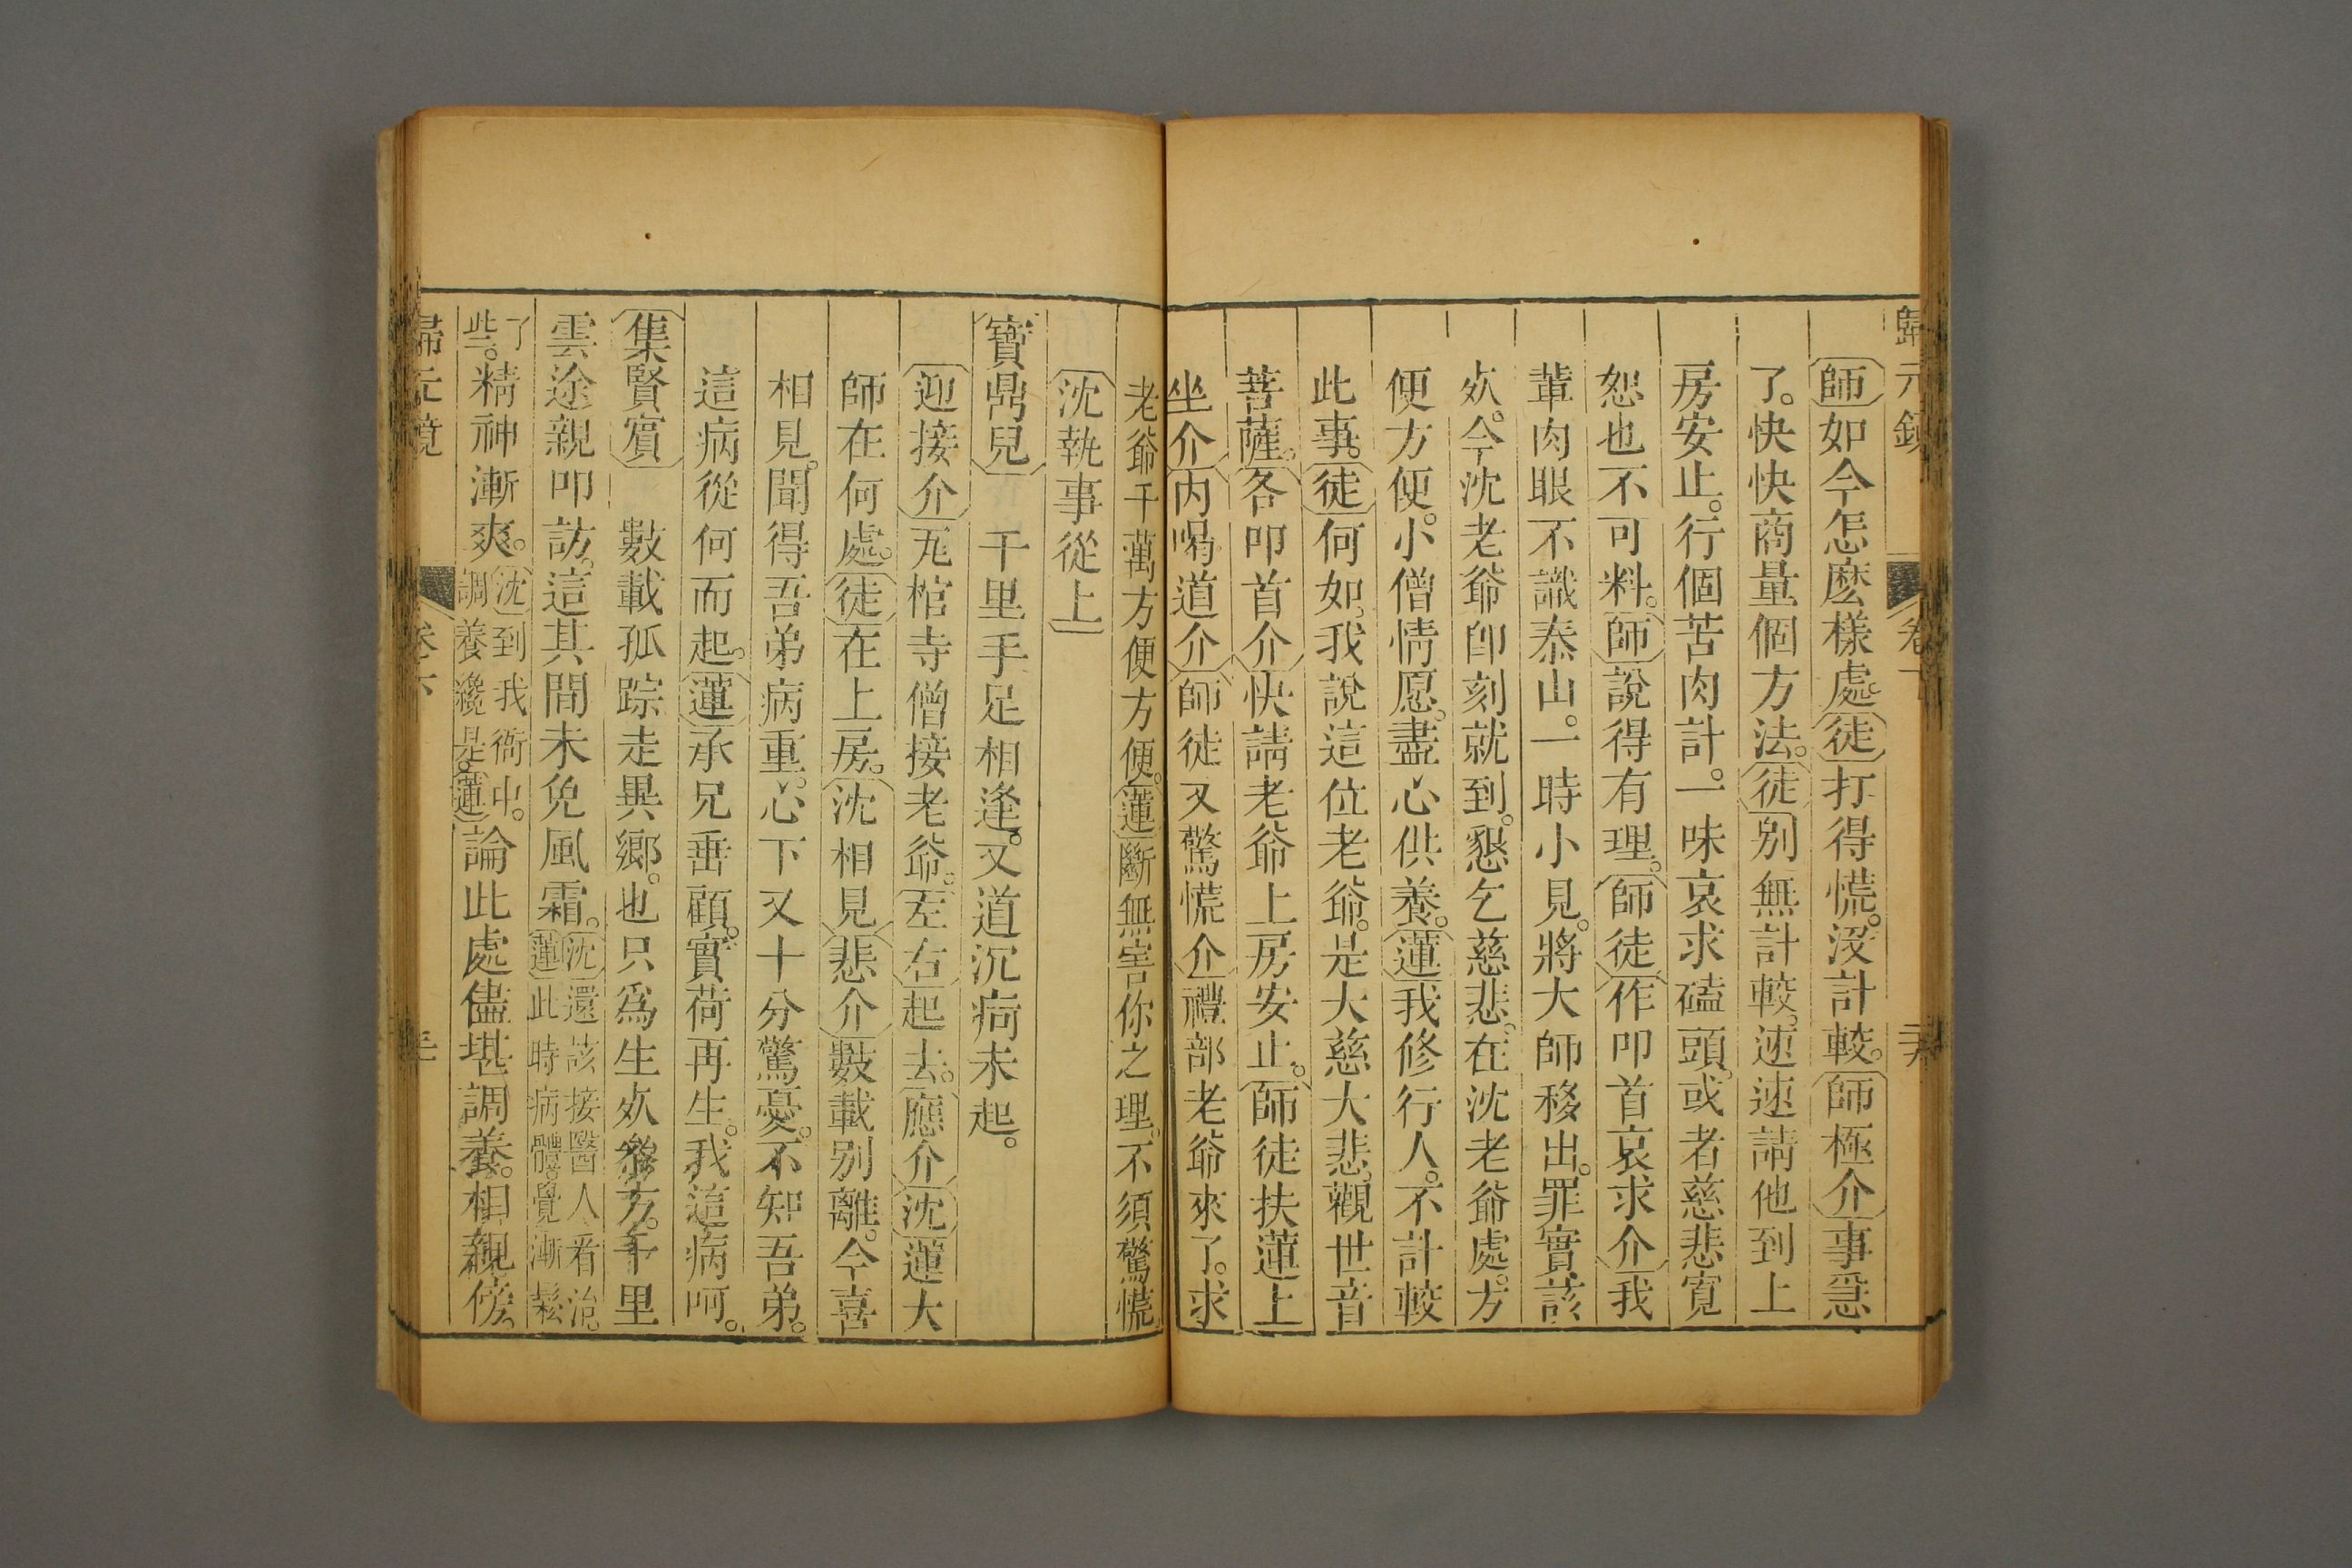 歸元鏡 卷下
師如今怎麽樣處。徒打得慌。没計較。師極介事急
了。快快商量個方法。徒别無計較。速速請他到上
房安止。行個苦肉計。一味哀求磕頭。或者慈悲寬
恕也不可料。師說得有理。師徒作叩首哀求介我
輩肉眼不識泰山。一時小見。將大師移出。罪實該
死。今沈老爺卽刻就到。懇乞慈悲。在沈老爺處。方
便方便。小僧情愿。盡心供養。蓮我修行人。不計較
此事。徒何如。我說這位老爺。是大慈大悲。觀世音
菩薩。各叩首介快請老爺上房安止。師徒扶蓮上
坐介内喝道介師徒又驚慌介禮部老爺來了。求
老爺千萬方便方便。蓮斷無害你之理。不須驚慌。
沈執事從上
寶鼎兒 千里手足相逢。又道沉疴未起。
迎接介瓦棺寺僧接老爺。左右起去。應介沈蓮大
師在何處。徒在上房。沈相見悲介數載别離。今喜
相見。聞得吾弟病重。心下又十分驚憂。不知吾弟。
這病從何而起。蓮承兄垂顧。實荷再生。我這病呵。
集賢賓 數載孤踪走異鄉。也只爲生死叅方。千里
雲途親叩訪。這其間未免風霜。沈還該接醫人看治。蓮此時病體。覺漸鬆
了些。精神漸爽。沈到我衙中。調養纔是。蓮論此處儘堪調養。相親傍。
歸元鏡 卷下